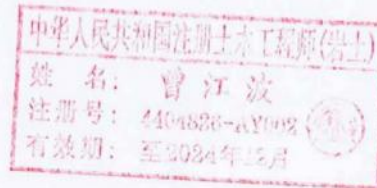 中华人民共和国注册土木工程师(岩土)
姓 名: 曾江波
注册号: 4404836-AY002
有效期: 至2024年12月